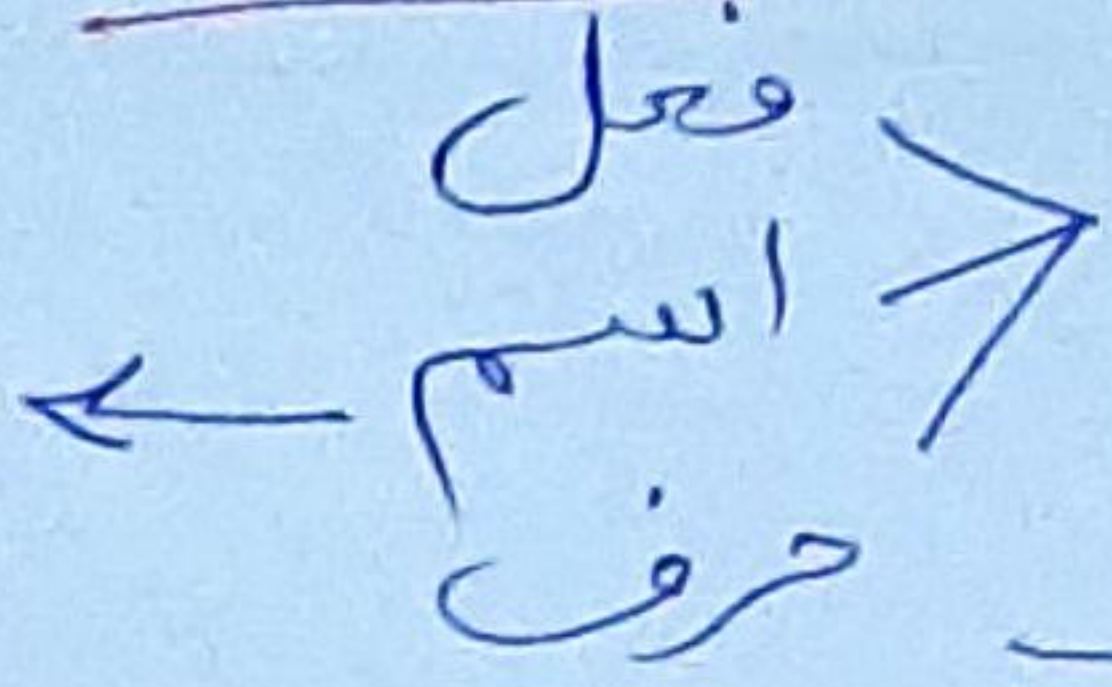 فعل
اسم
حرف